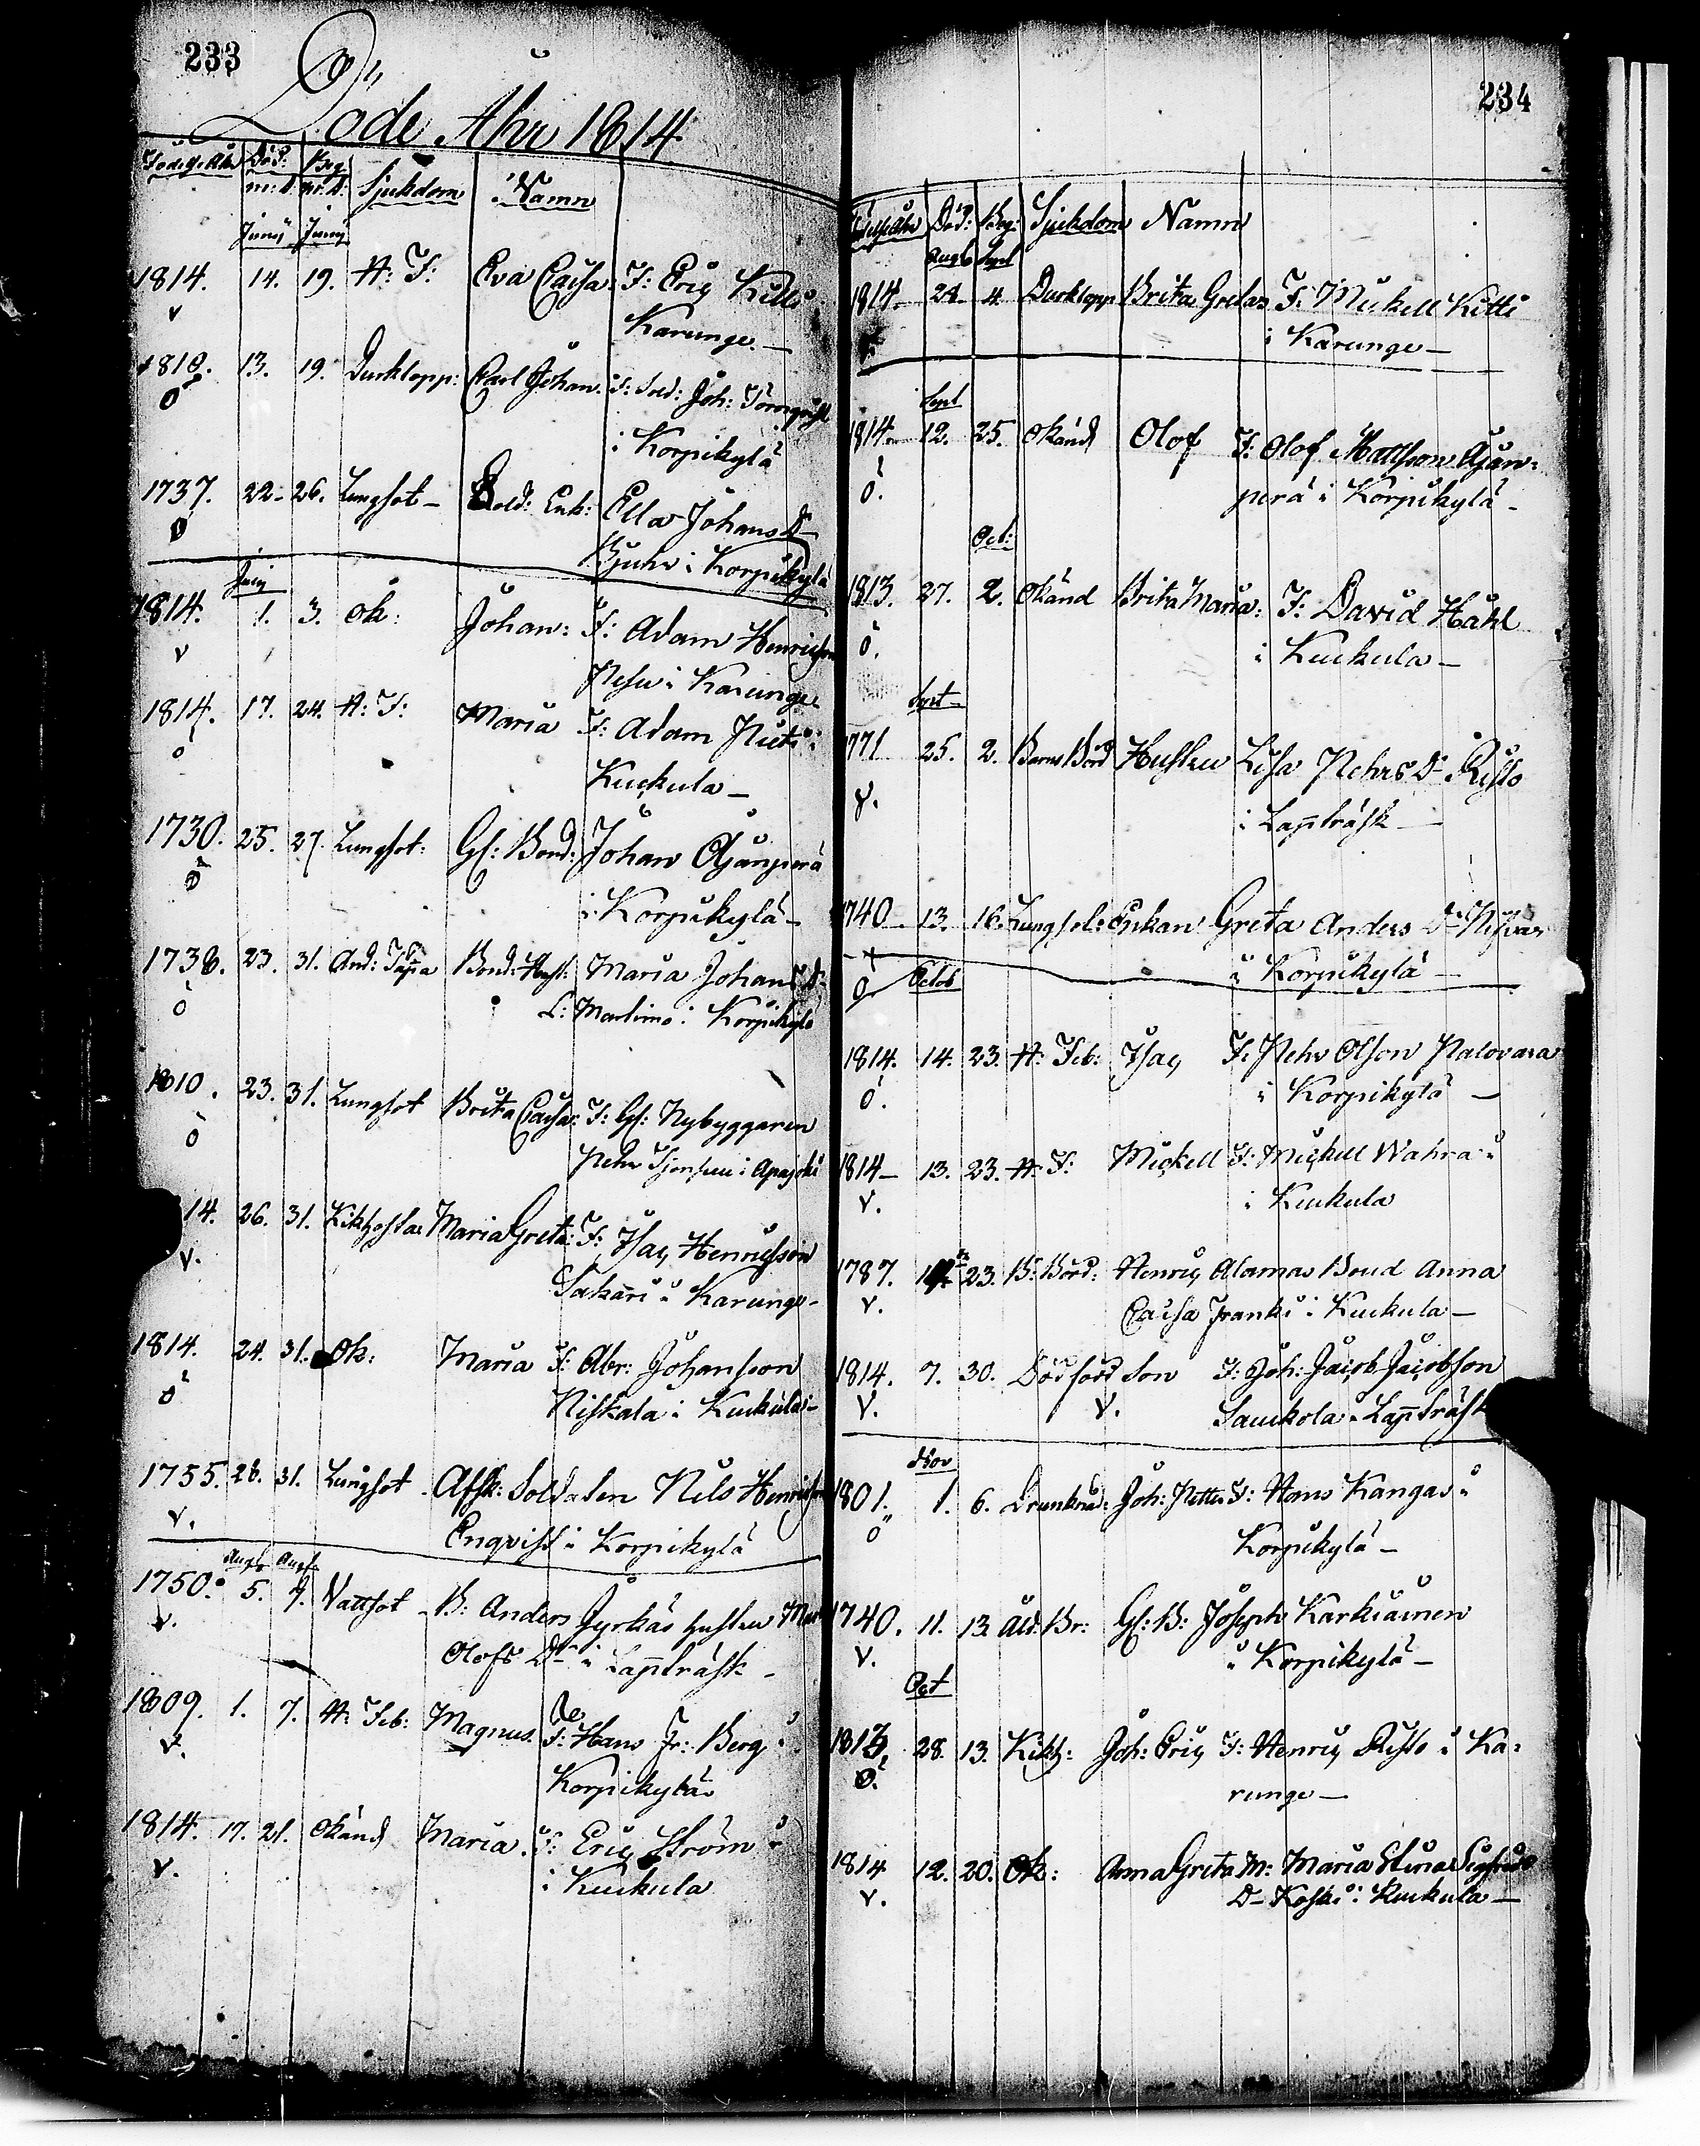 233
Döde Åhr 1814
Födelse Åhr Död: Beg
m: d: m: d: Sjukdom Namn
Junij Junij
1814. 14. 19. H: F: Eva Caisa F: Eric Kitti
v Karunge. —
1810. 13. 19. Durklopp: Carl Johan. F: Sold: Joh: Törnqvist
ö i Korpikylä
1737. 22 - 26. Lungsot - Sold: Enk: Ella Johans D
ö i Korpikylä
1814. 1. 3. ok: Johan: F: Adam Henricsson
v i Karunge
1814. 17. 24. H: F: Maria F: Adam
ö Kuckula —
1730. 25. 27. Lungsot: Gl: Bond: Johan Ajanperä
ö i Korpikylä —
1738. 23. 31. And: Täppa Bond: Hust: Maria Johans D:
ö L: Martimo i Korpikylä
1810. 23. 31. Lungsot Brita Caisa: F: Gl: Nybyggaren
ö Pehr
14. 26. 31. Kikhosta Maria Greta: F: Isac Henricsson
v. Sakari i Karunge -
1814. 24. 31. Ok: Maria F: Abr: Johansson
ö Niskala i Kuckula -
1755. 28. 31. Lungsot - Afsk: Soldaten Nils Henricsson
v. Enqvist i Korpikylä
Augs Augs
1750. 5. 7. Vattsot - B: Anders Jyrkäs hustru
v. Olofs Dr i Lappträsk -
1809. 1. 7. H: Feb: Magnus. F: Hans Jr: Berg i
v. Korpikylä
1814. 17. 21. Okänd Maria. F: Eric Ström
v. i Kuckula
234
Födelse Åhr Död: Beg: Sjukdom Namn
Augs Sept
1814 28 4. Durklopp Brita Greta F: Mickell Kitti
i Karunge —
Sept
1814. 12. 25. Okänd Olof F: Olof Mattsson Ajan:
ö. perä i Korpikylä -
Oct:
1813. 27. 2. Okänd Brita Maria: F: David Håhl
ö. i Kuckula —
Sept -
1771 25. 2. Barns Börd Hustru Lisa Pehrs Dr Risto
v. i Lappträsk —
1740 13. 16. Lungsot: Enkan Greta Anders Dr
i Korpikylä —
ö Octob
1814. 14. 23. H: Feb: Isac F: Pehr Olsson Palovara
ö. i Korpikylä —
1814 — 13. 23. H: F: Mickell F: Mickell Wahra
v. i Kuckula
1787. 23. B: Börd: Henric Alamas Bond Anna
v. Caisa Franki i Kuckula —
1814. 7. 30. Dödförd Son F: Joh: Jacob Jacobson
v. v. Sauckola i Lappträsk
Nov
1801. 1. 6. Drunknad: Joh: Petter F: Hans Kangas i
ö Korpikylä —
1740. 11. 13. Åld: Br: Gl: B: Joseph Karkiainen
v. i Korpikylä —
Oct
1813. 28. 13. Kikh: Joh: Eric F: Henric Risto i Ka:
ö. runge —
1814 12. 20. Ok: Anna Greta M: Maria Stina Sigfrids
v. D - Koski i Kuckula —